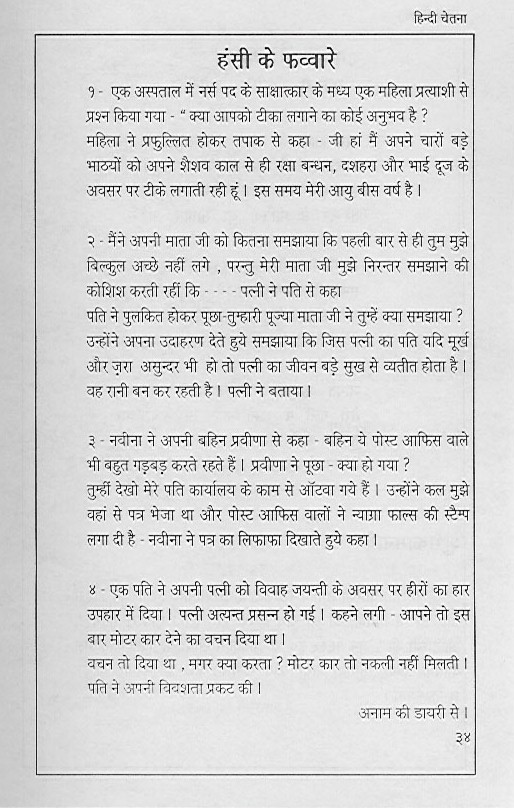 हिन्दी चेतना
हंसी के फव्वारे
१- एक अस्पताल में नर्स पद के साक्षात्कार के मध्य एक महिला प्रत्याशी से
प्रश्न किया गया - “ क्या आपको टीका लगाने का कोई अनुभव है ?
महिला ने प्रफुल्लित होकर तपाक से कहा - जी हां मैं अपने चारों बड़े
भाठयों को अपने शैशव काल से ही रक्षा बन्धन, दशहरा और भाई दूज के
अवसर पर टीके लगाती रही हूं । इस समय मेरी आयु बीस वर्ष है ।
२ - मैंने अपनी माता जी को कितना समझाया कि पहली बार से ही तुम मुझे
बिल्कुल अच्छे नहीं लगे , परन्तु मेरी माता जी मुझे निरन्तर समझाने की
कोशिश करती रहीं कि - - - - पत्नी ने पति से कहा
पति ने पुलकित होकर पूछा-तुम्हारी पूज्या माता जी ने तुम्हें क्या समझाया ?
उन्होंने अपना उदाहरण देते हुये समझाया कि जिस पत्नी का पति यदि मूर्ख
और ज़रा असुन्दर भी हो तो पत्नी का जीवन बड़े सुख से व्यतीत होता है ।
वह रानी बन कर रहती है । पत्नी ने बताया ।
३ - नवीना ने अपनी बहिन प्रवीणा से कहा - बहिन ये पोस्ट आफिस वाले
भी बहुत गड़बड़ करते रहते हैं । प्रवीणा ने पूछा - क्या हो गया ?
तुम्हीं देखो मेरे पति कार्यालय के काम से ऑटवा गये हैं । उन्होंने कल मुझे
वहां से पत्र भेजा था और पोस्ट आफिस वालों ने न्याग्रा फाल्स की स्टैम्प
लगा दी है - नवीना ने पत्र का लिफाफा दिखाते हुये कहा ।
४ - एक पति ने अपनी पत्नी को विवाह जयन्ती के अवसर पर हीरों का हार
उपहार में दिया । पत्नी अत्यन्त प्रसन्न हो गई । कहने लगी - आपने तो इस
बार मोटर कार देने का वचन दिया था ।
वचन तो दिया था , मगर क्या करता ? मोटर कार तो नकली नहीं मिलती ।
पति ने अपनी विवशता प्रकट की ।
अनाम की डायरी से ।
३४